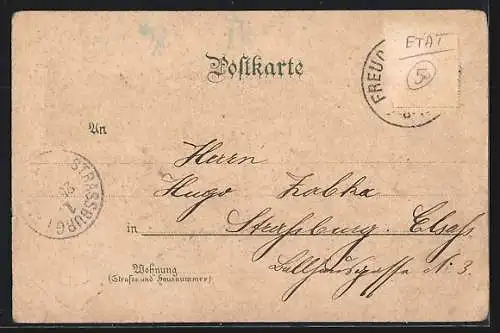 Postkarte
ETAT
5
FREUD
An
Herrn
Hugo Zabka
STRASSBURG
1
in Strassburg. Elsaß
Ballhausgasse N. 3.
Wohnung
(Strasse und Hausnummer)